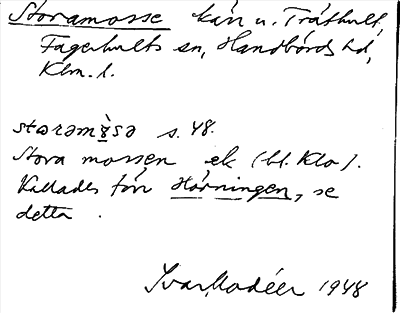 Storamosse kärr u. Tråthult,
Fagerhults sn, Handbörds hd,
Klm. l.
s. 48.
Stora mossen ek (bl. Kla).
Kallades förr Hörningen, se
detta.
Ivar Modéer 1948